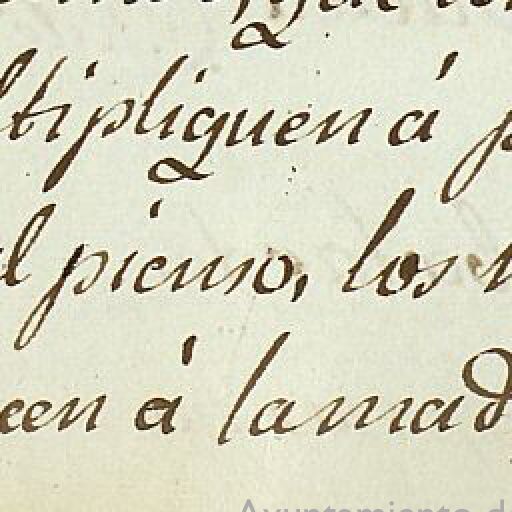 ltipliquen á p
l pienso, los
een á lamad
Ayuntamiento d